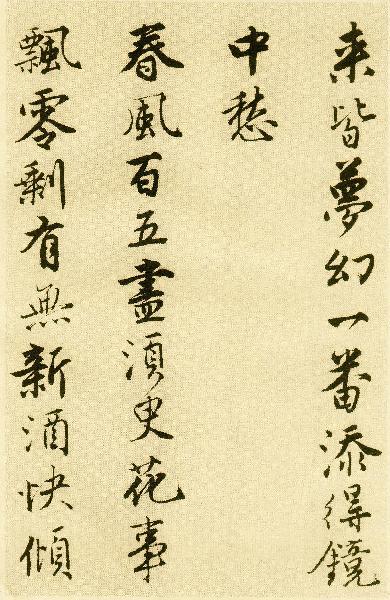 来皆夢幻一番添得鏡
中愁
春風百五盡須史花事
飄零剩有無新酒快傾